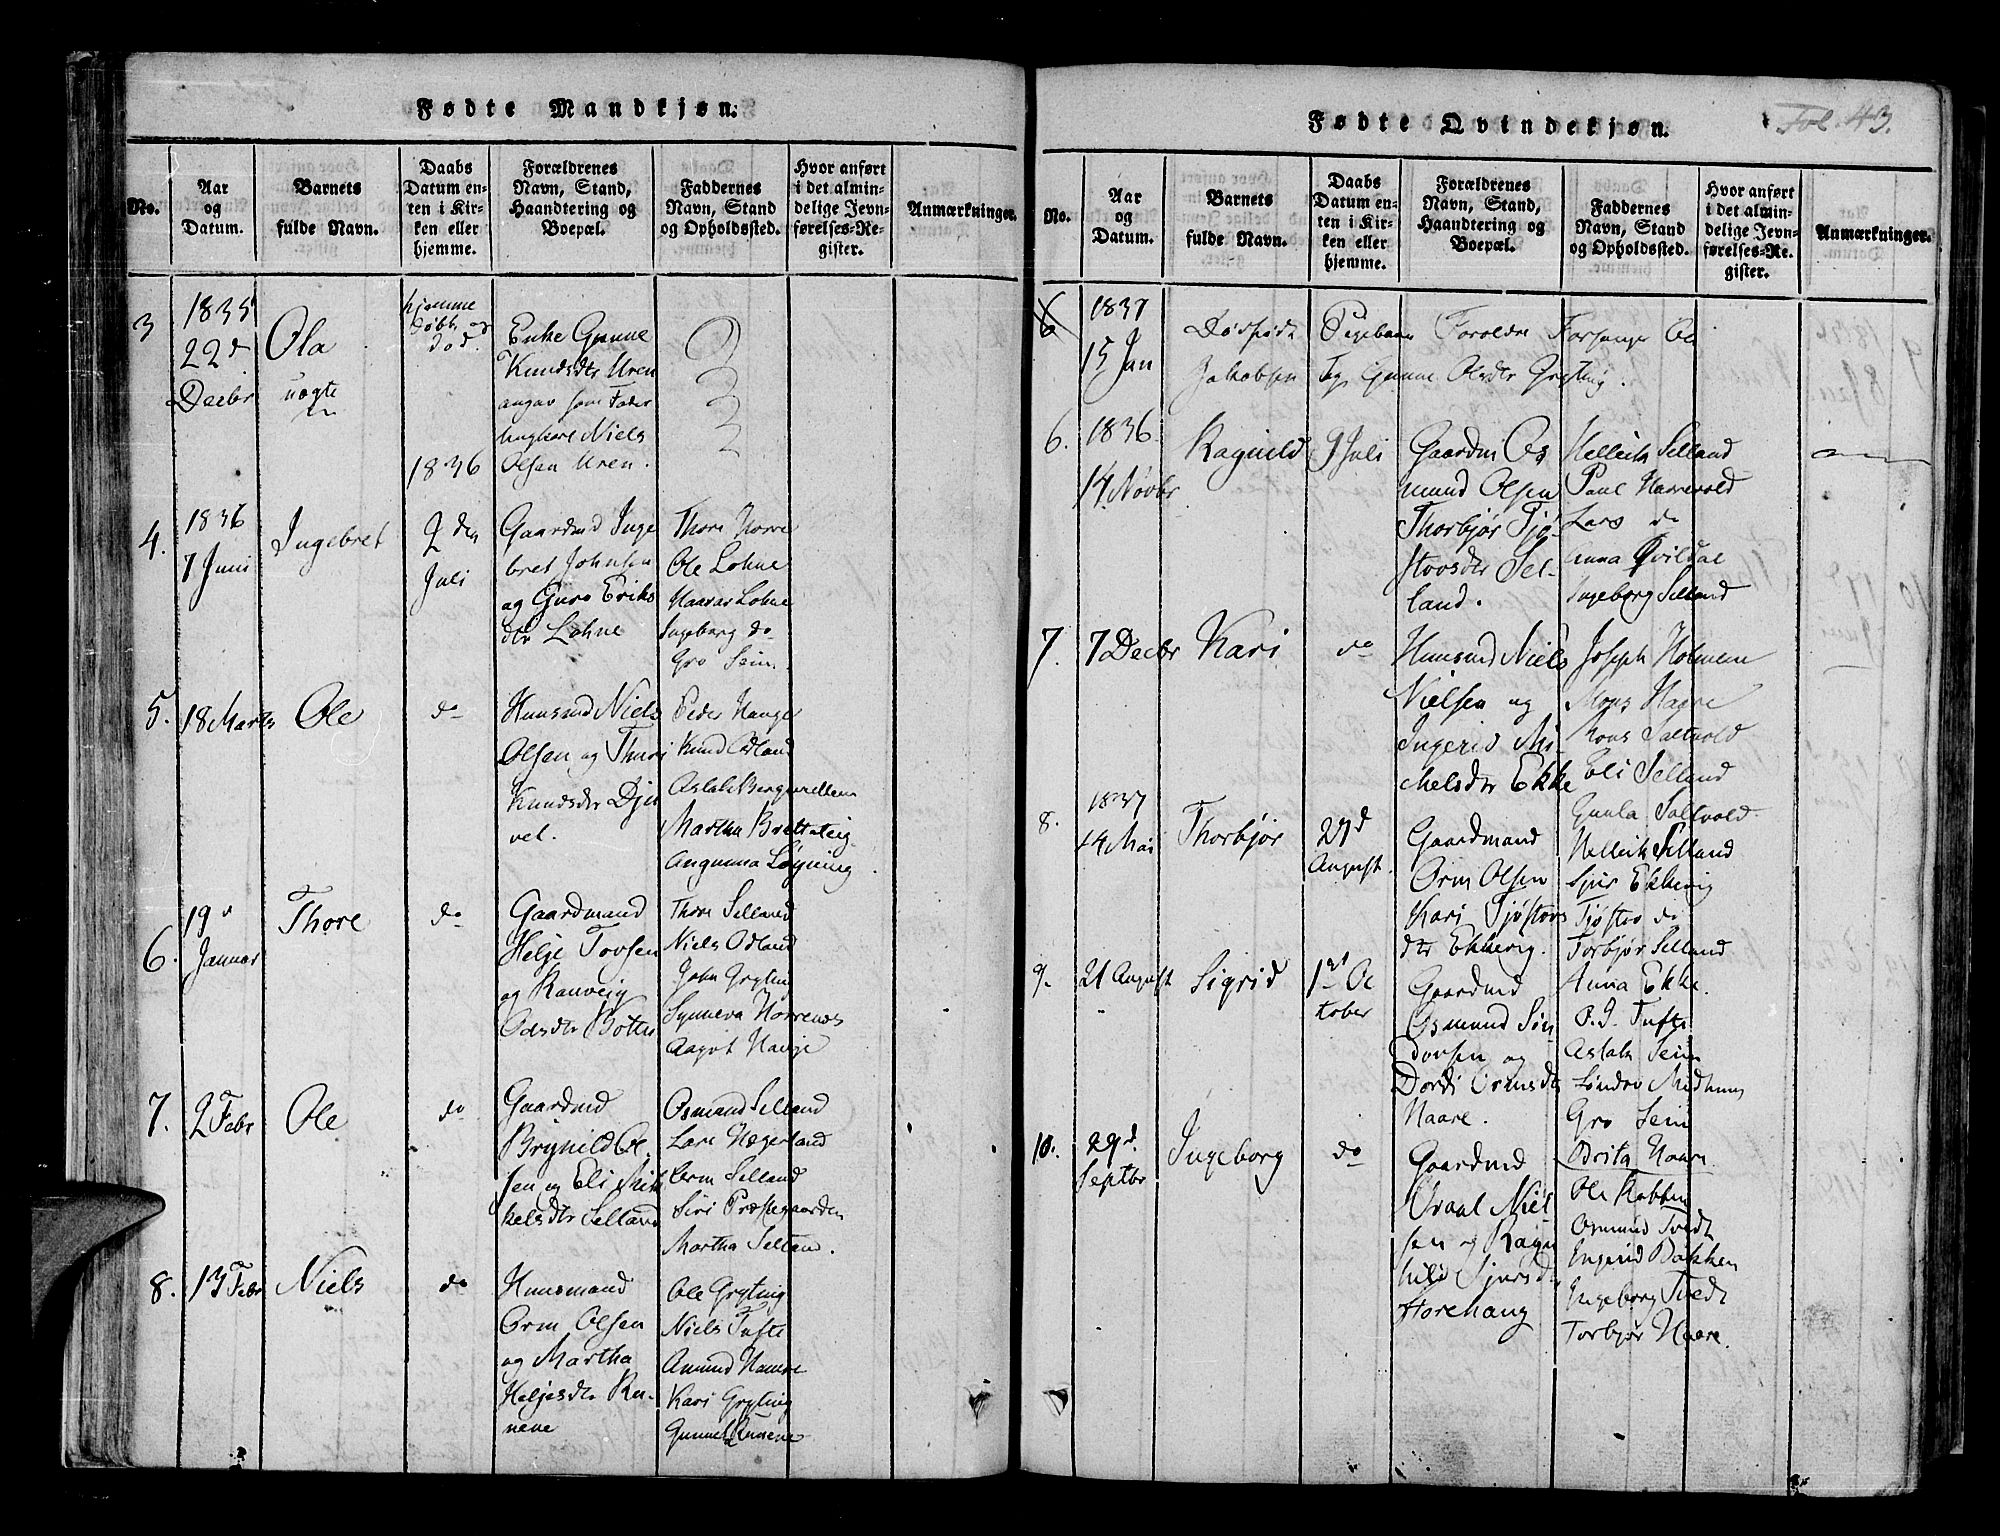 Fødte Mandkjøn.
No.
Aar og Datum.
Barnets fulde Navn.
Daabs Datum enten i Kirken eller hjemme.
Forældrenes Navn, Stand, Haandtering og Boepæl.
Faddernes Navn, Stand og Opholdssted.
Hvor anført i det almindelige Jevnførelses-Register.
Anmærkninger.
3
1835
22d
Decbr
Ola
uægte
hjemme
døbt og
død.
Enke Gunne
Knudsdtr Uren
angav som Fader
Ungkarl Niels
Olsen Uren.
1836
4.
1836
7 Juni
Ingebret
2 den
Juli
Gaardmd Inge
bret Johnsen
og Guro Eriks
dtr Lohne
Thore Horve
Ole Lohne
Haavar Lohne
Ingeborg do
Gro Seim.
5.
18 Marts
Ole
do
Huusmd Niels
Olsen og Thuri
Knudsdtr Dju
vet.
Peder Hauge
Knud Odland
Aslak Bergsvellem
Martha Bratteteig
Angunna Løyning
6.
19d
Januar
Thore
do
Gaardmand
Helje Tovsen
og Ranveig
Odsdtr Botne
Thore Selland
Niels Odland
John Gryting
Synneva Horrenæs
Aagot Hauge
7.
2 Febr
Ole
do
Gaardmd
Brynild Ol
sen og Eli Mik
kelsdtr Selland
Osmand Selland
Lars Hægerland
Orm Selland
Siri Præstegaarden
Martha Selland.
8.
13 Febr
Niels
do
Huusmand
Orm Olsen
og Martha
Heljesdtr Ru-
nene
Ole Grytting
Niels Tufte
Amund Hamre
Kari Grytting
Gunnel Runene
Fødte Qvindekjøn.
Fol. 43.
No.
Aar og Datum.
Barnets fulde Navn.
Daabs Datum enten i Kirken eller hjemme.
Forældrenes Navn, Stand, Haandtering og Boepæl.
Faddernes Navn, Stand og Opholdssted.
Hvor anført i det almindelige Jevnførelses-Register.
Anmærkninger.
6
1837
15 Jan
Dødfødt Pigebarn Foreldre Forsanger Ole
Jakobsen og Gunne Olsdtr Grytting.
6.
1836
14 Novbr
Ragnild
9 Juli
Gaardm Os
mund Olsen
Thorbjør Tjø-
stovsdtr Sel-
land.
Hellik Selland
Paul Havrevold
Lars do
Anna Qvildal
Ingeborg Selland
7.
7 Decbr
Kari
do
Huusmd Niels
Nielsen og
Ingerid Mi-
kelsdtr Ekke
Joseph Holmene
Mons Haare
Mons Saltvold
Eli Selland
Gunla Saltvold
8.
1837
14 Mai
Thorbjør
27d
August.
Gaardmand
Orm Olsen
Kari Tjøstovs
dtr Ekkevig.
Hellik Selland
Sjur Ekkevig
Tjøstov do
Torbjør Selland
Anna Ekke.
9.
21 August
Sigrid
1ste Oc
tober
Gaardmd
Osmund Søn
dovsen og
Dordi Ormsdtr
Haare.
P. J. Tufte
Aslak Seim
Søndov Midthun
Gro Seim
Brita Haare
10.
29d.
Septbr
Ingeborg
do
Gaardmd
Odvat Niel
sen og Ragn
hild Sjursd.
Horehaug
Ole Rabben
Osmund Tvedt
Ingerid Bakken
Ingeborg Tvedt
Torbjør Haare.